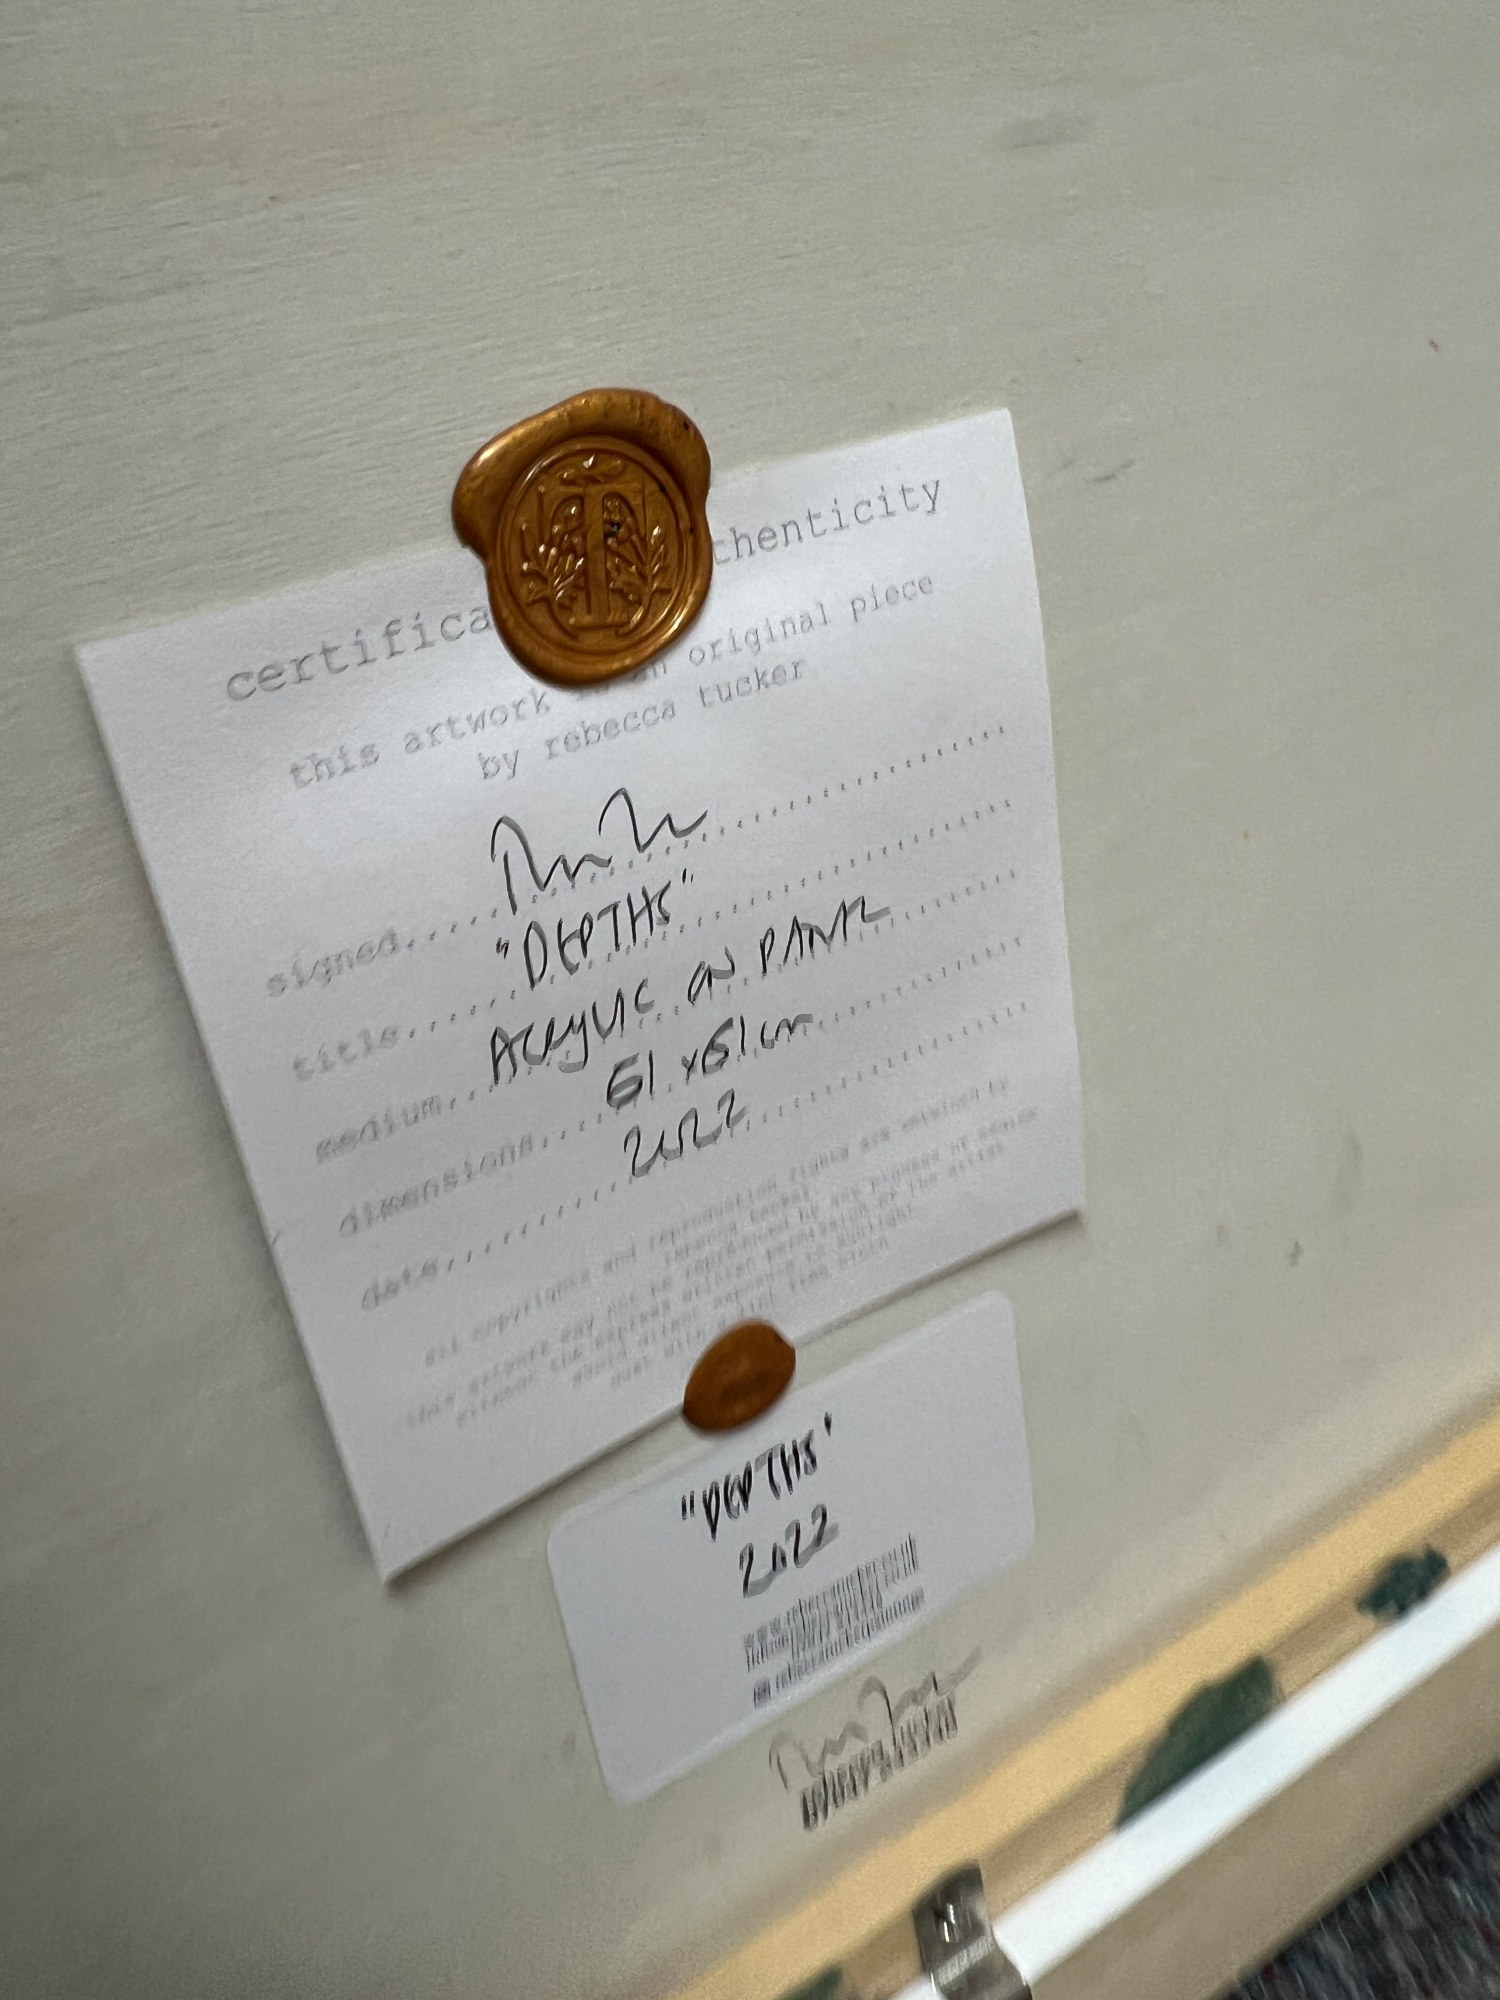 T
certifica thenticity
this artwork is an original piece
by rebecca tucker
signed
title "DEPTHS"
medium ACRYLIC ON PANEL
dimensions 61 x 61 cm
date 2022
all copyrights and reproduction rights are retained by
rebecca tucker
this artwork may not be reproduced by any process or means
without the express written permission of the artist
avoid direct exposure to sunlight
dust with a lint free cloth
"DEPTHS"
2022